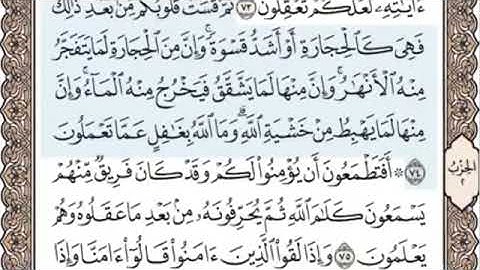 ءَايَٰتِهِۦ لَعَلَّكُمْ تَعْقِلُونَ ٧٣ ثُمَّ قَسَتْ قُلُوبُكُم مِّنۢ بَعْدِ ذَٰلِكَ
فَهِىَ كَٱلْحِجَارَةِ أَوْ أَشَدُّ قَسْوَةً ۚ وَإِنَّ مِنَ ٱلْحِجَارَةِ لَمَا يَتَفَجَّرُ
مِنْهُ ٱلْأَنْهَٰرُ ۚ وَإِنَّ مِنْهَا لَمَا يَشَّقَّقُ فَيَخْرُجُ مِنْهُ ٱلْمَآءُ ۚ وَإِنَّ
مِنْهَا لَمَا يَهْبِطُ مِنْ خَشْيَةِ ٱللَّهِ ۗ وَمَا ٱللَّهُ بِغَٰفِلٍ عَمَّا تَعْمَلُونَ
٧٤ ۞ أَفَتَطْمَعُونَ أَن يُؤْمِنُوا۟ لَكُمْ وَقَدْ كَانَ فَرِيقٌ مِّنْهُمْ
يَسْمَعُونَ كَلَٰمَ ٱللَّهِ ثُمَّ يُحَرِّفُونَهُۥ مِنۢ بَعْدِ مَا عَقَلُوهُ وَهُمْ
يَعْلَمُونَ ٧٥ وَإِذَا لَقُوا۟ ٱلَّذِينَ ءَامَنُوا۟ قَالُوٓا۟ ءَامَنَّا وَإِذَا
الحِزْبُ
٢